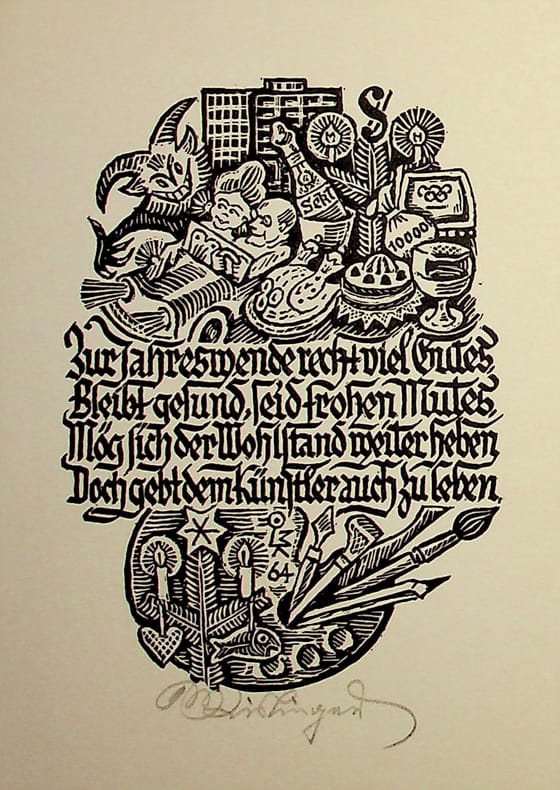 S
M
M
SEKT
ABC
M
10000
Zur Jahreswende recht viel Gutes
Bleibt gesund, seid frohen Mutes
Mög sich der Wohlstand weiter heben
Doch gebt dem Künstler auch zu leben.
OMK
64